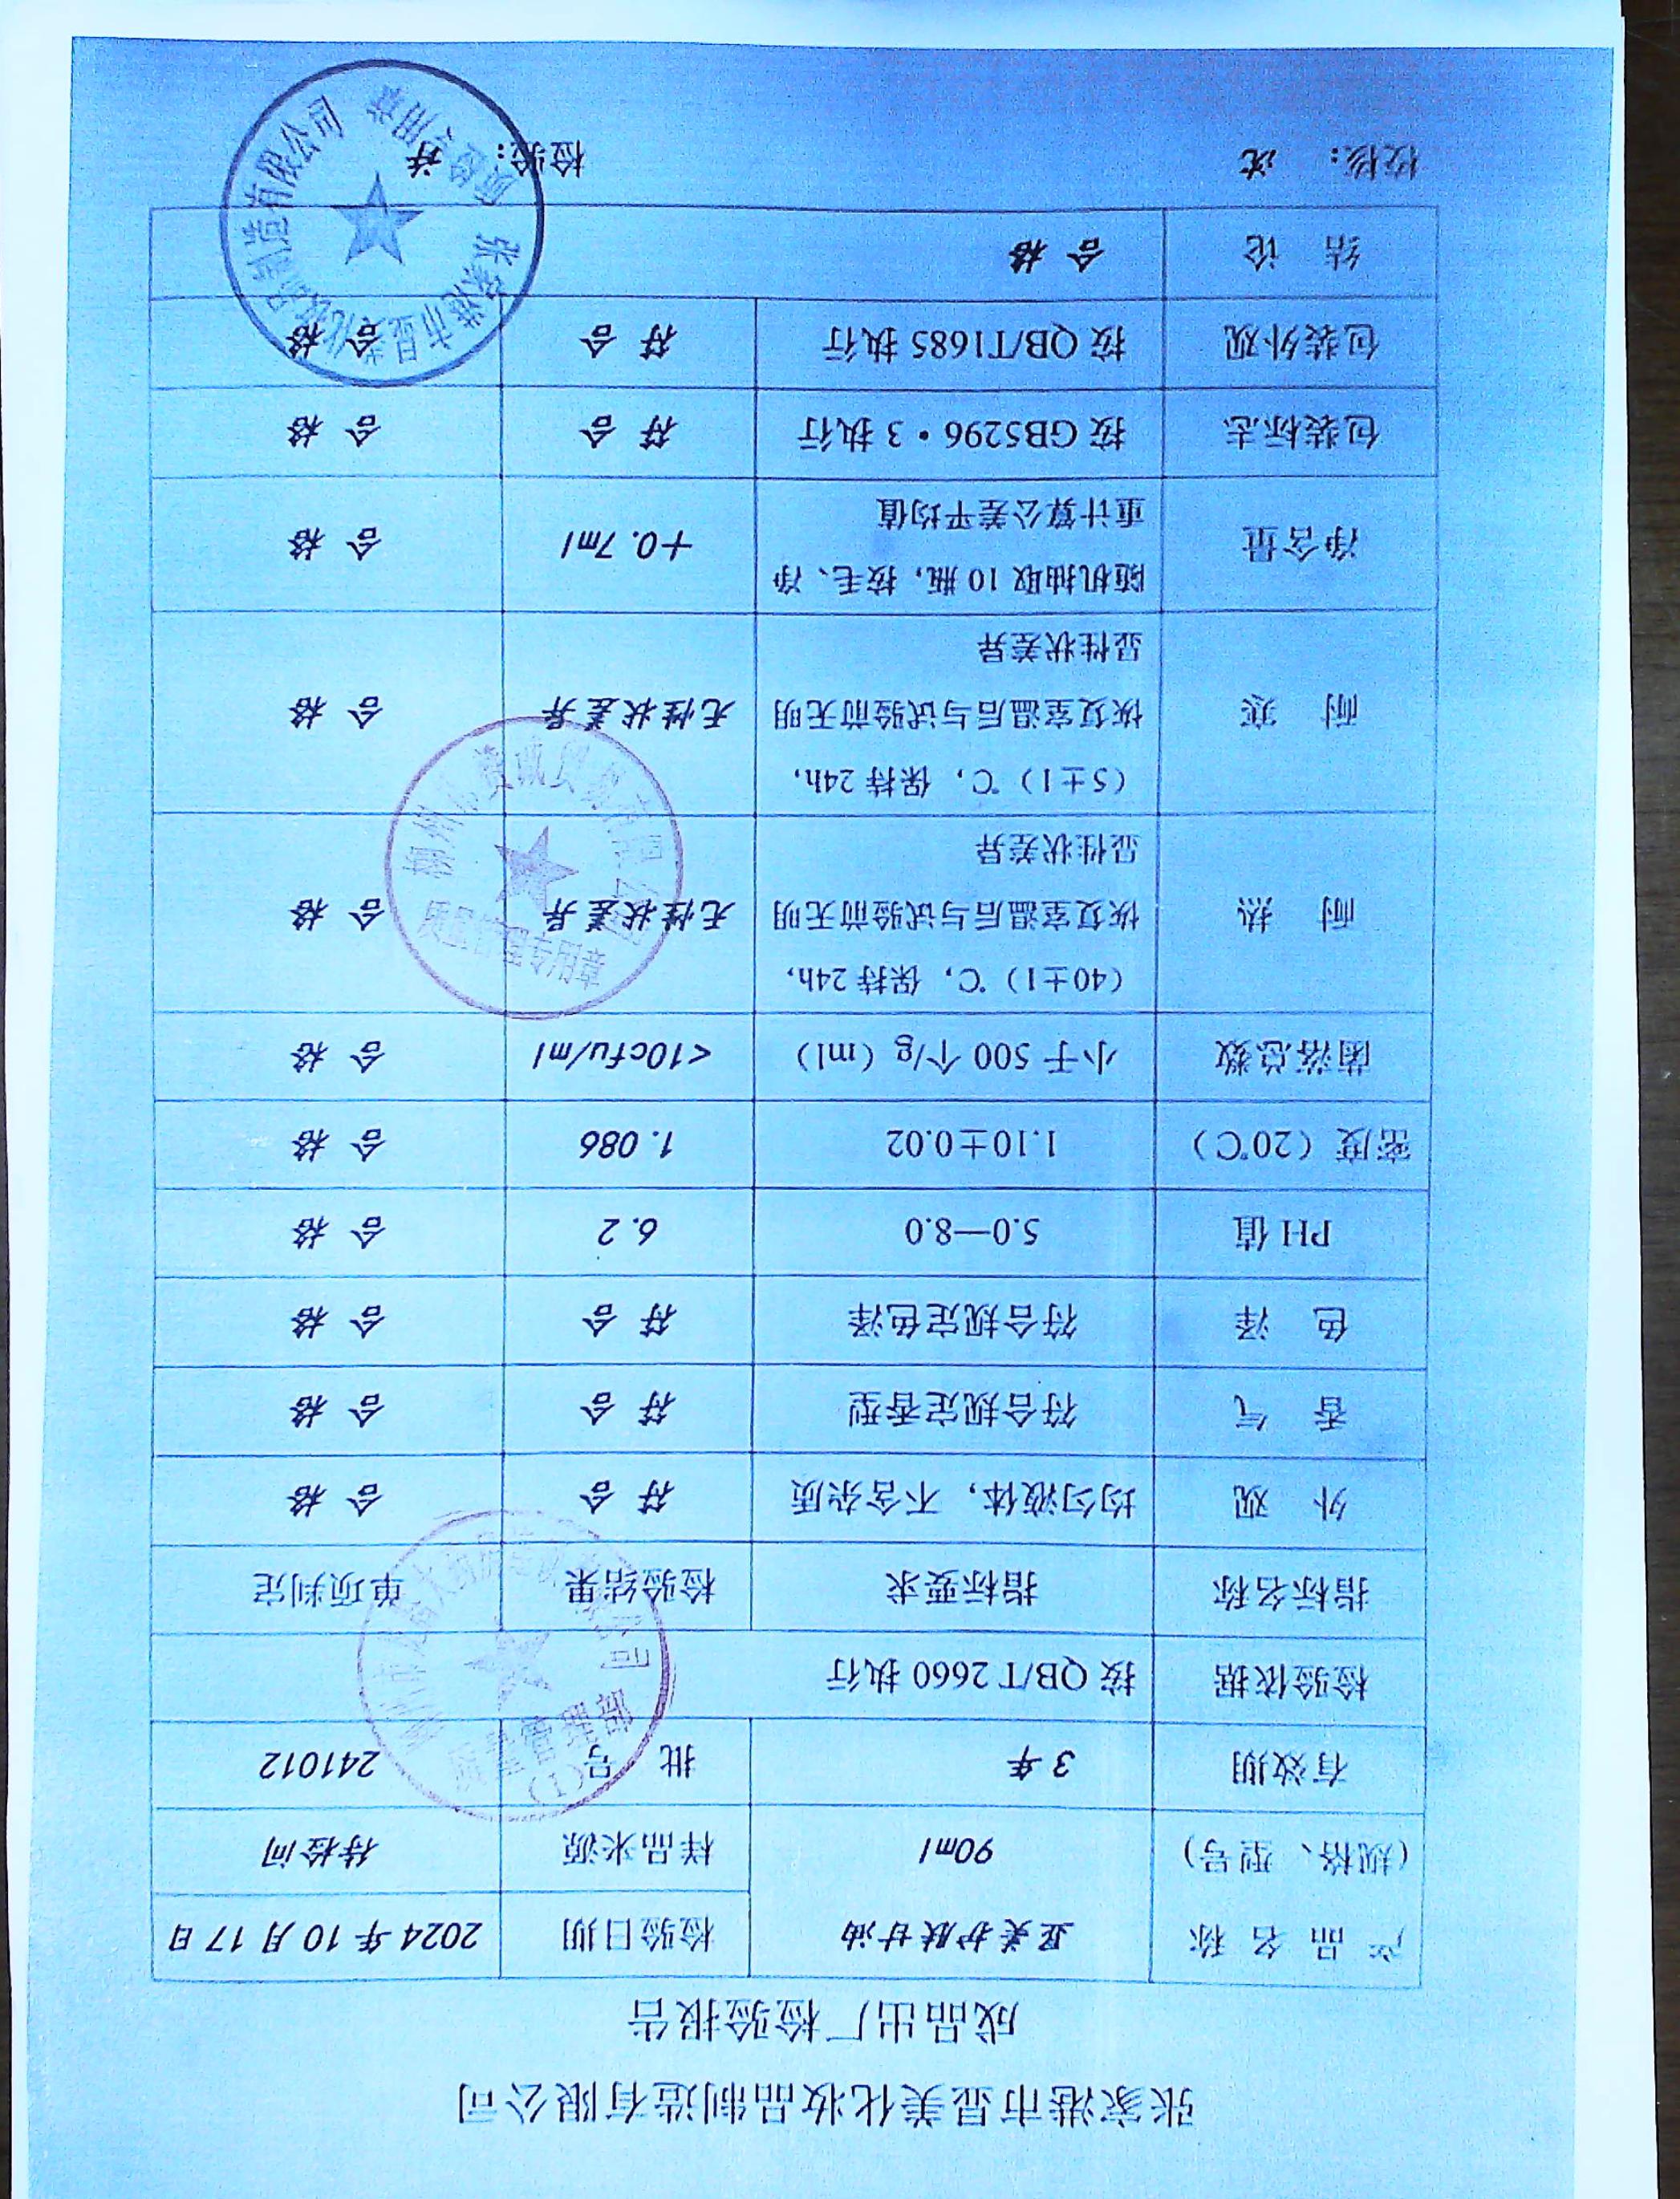 张家港市显美化妆品制造有限公司
成品出厂检验报告
产品名称 显美护肤甘油 检验日期 2024年10月17日
（规格、型号） 90ml 样品来源 待检间
有效期 3年 批 号 241012
检验依据 按 QB/T 2660 执行
指标名称 指标要求 检验结果 单项判定
外 观 均匀液体，不含杂质 符合 合格
香 气 符合规定香型 符合 合格
色 泽 符合规定色泽 符合 合格
PH 值 5.0—8.0 6.2 合格
密度（20℃） 1.10±0.02 1.086 合格
菌落总数 小于 500 个/g（ml） <10cfu/ml 合格
耐 热 （40±1）℃，保持 24h，
恢复室温后与试验前无明 无性状差异 合格
显性状差异
耐 寒 （5±1）℃，保持 24h，
恢复室温后与试验前无明 无性状差异 合格
显性状差异
净含量 随机抽取 10 瓶，按毛、净 +0.7ml 合格
重计算公差平均值
包装标志 按 GB5296·3 执行 符合 合格
包装外观 按 QB/T1685 执行 符合 合格
结 论 合格
校核： 沈 检验： 许
张家港市显美化妆品制造有限公司
质检专用章
质量管理专用章
质量管理部
（1）